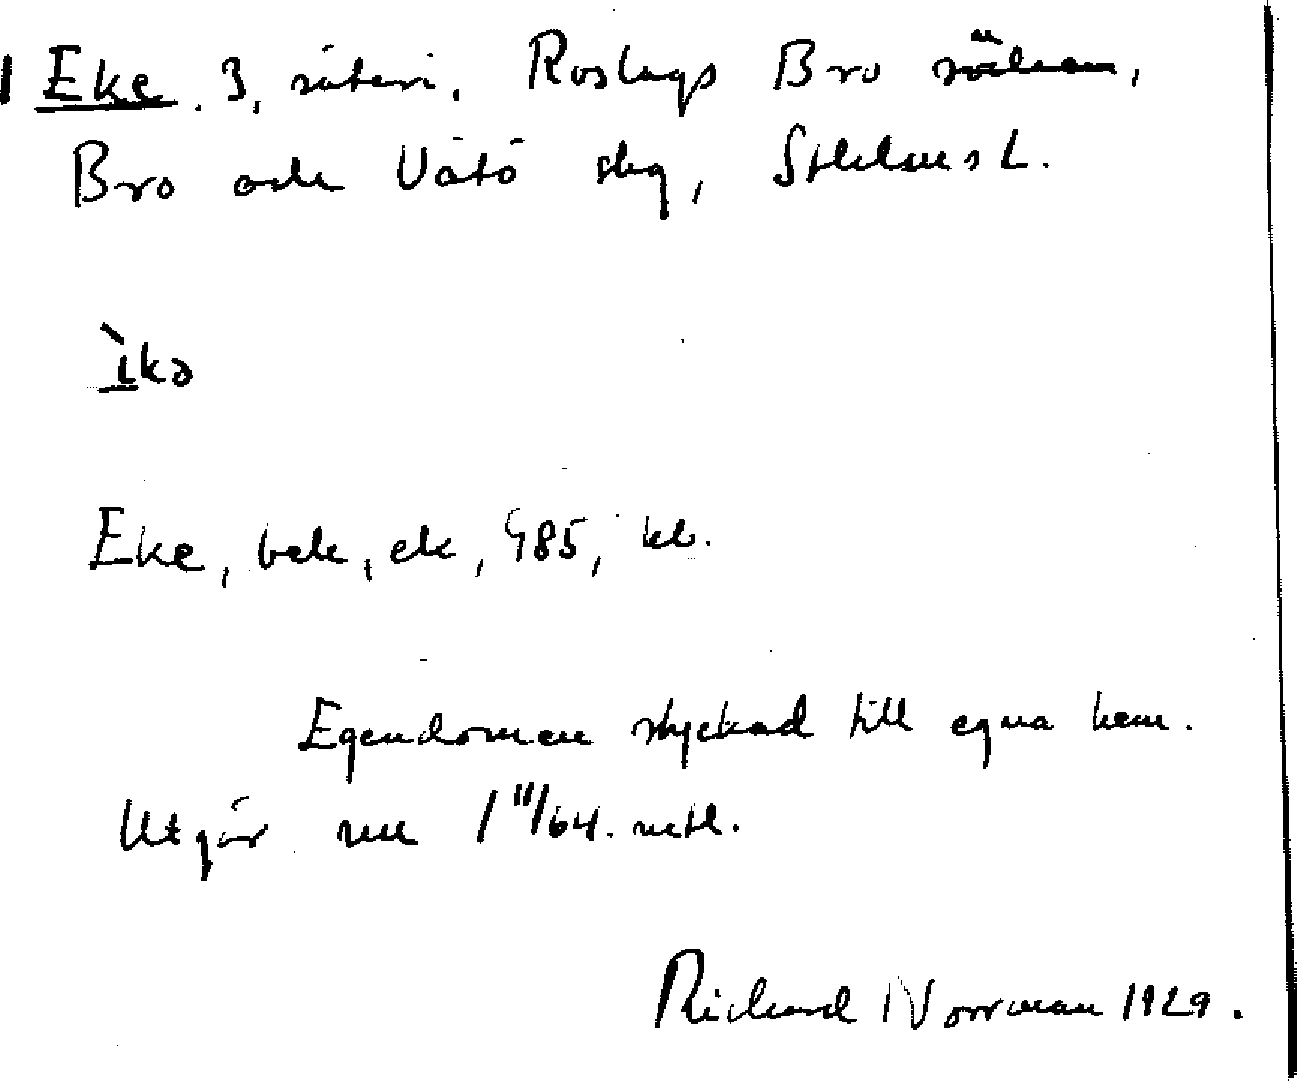 Eke. 3, säteri, Roslags Bro socken,
Bro och Vätö skg, Sthlms L.
ìkə
Eke, bek, ek, 985, kb.
Egendomen styckad till egna hem.
Utgör nu 1 11/64. mtl.
Richard Norrman 1929.